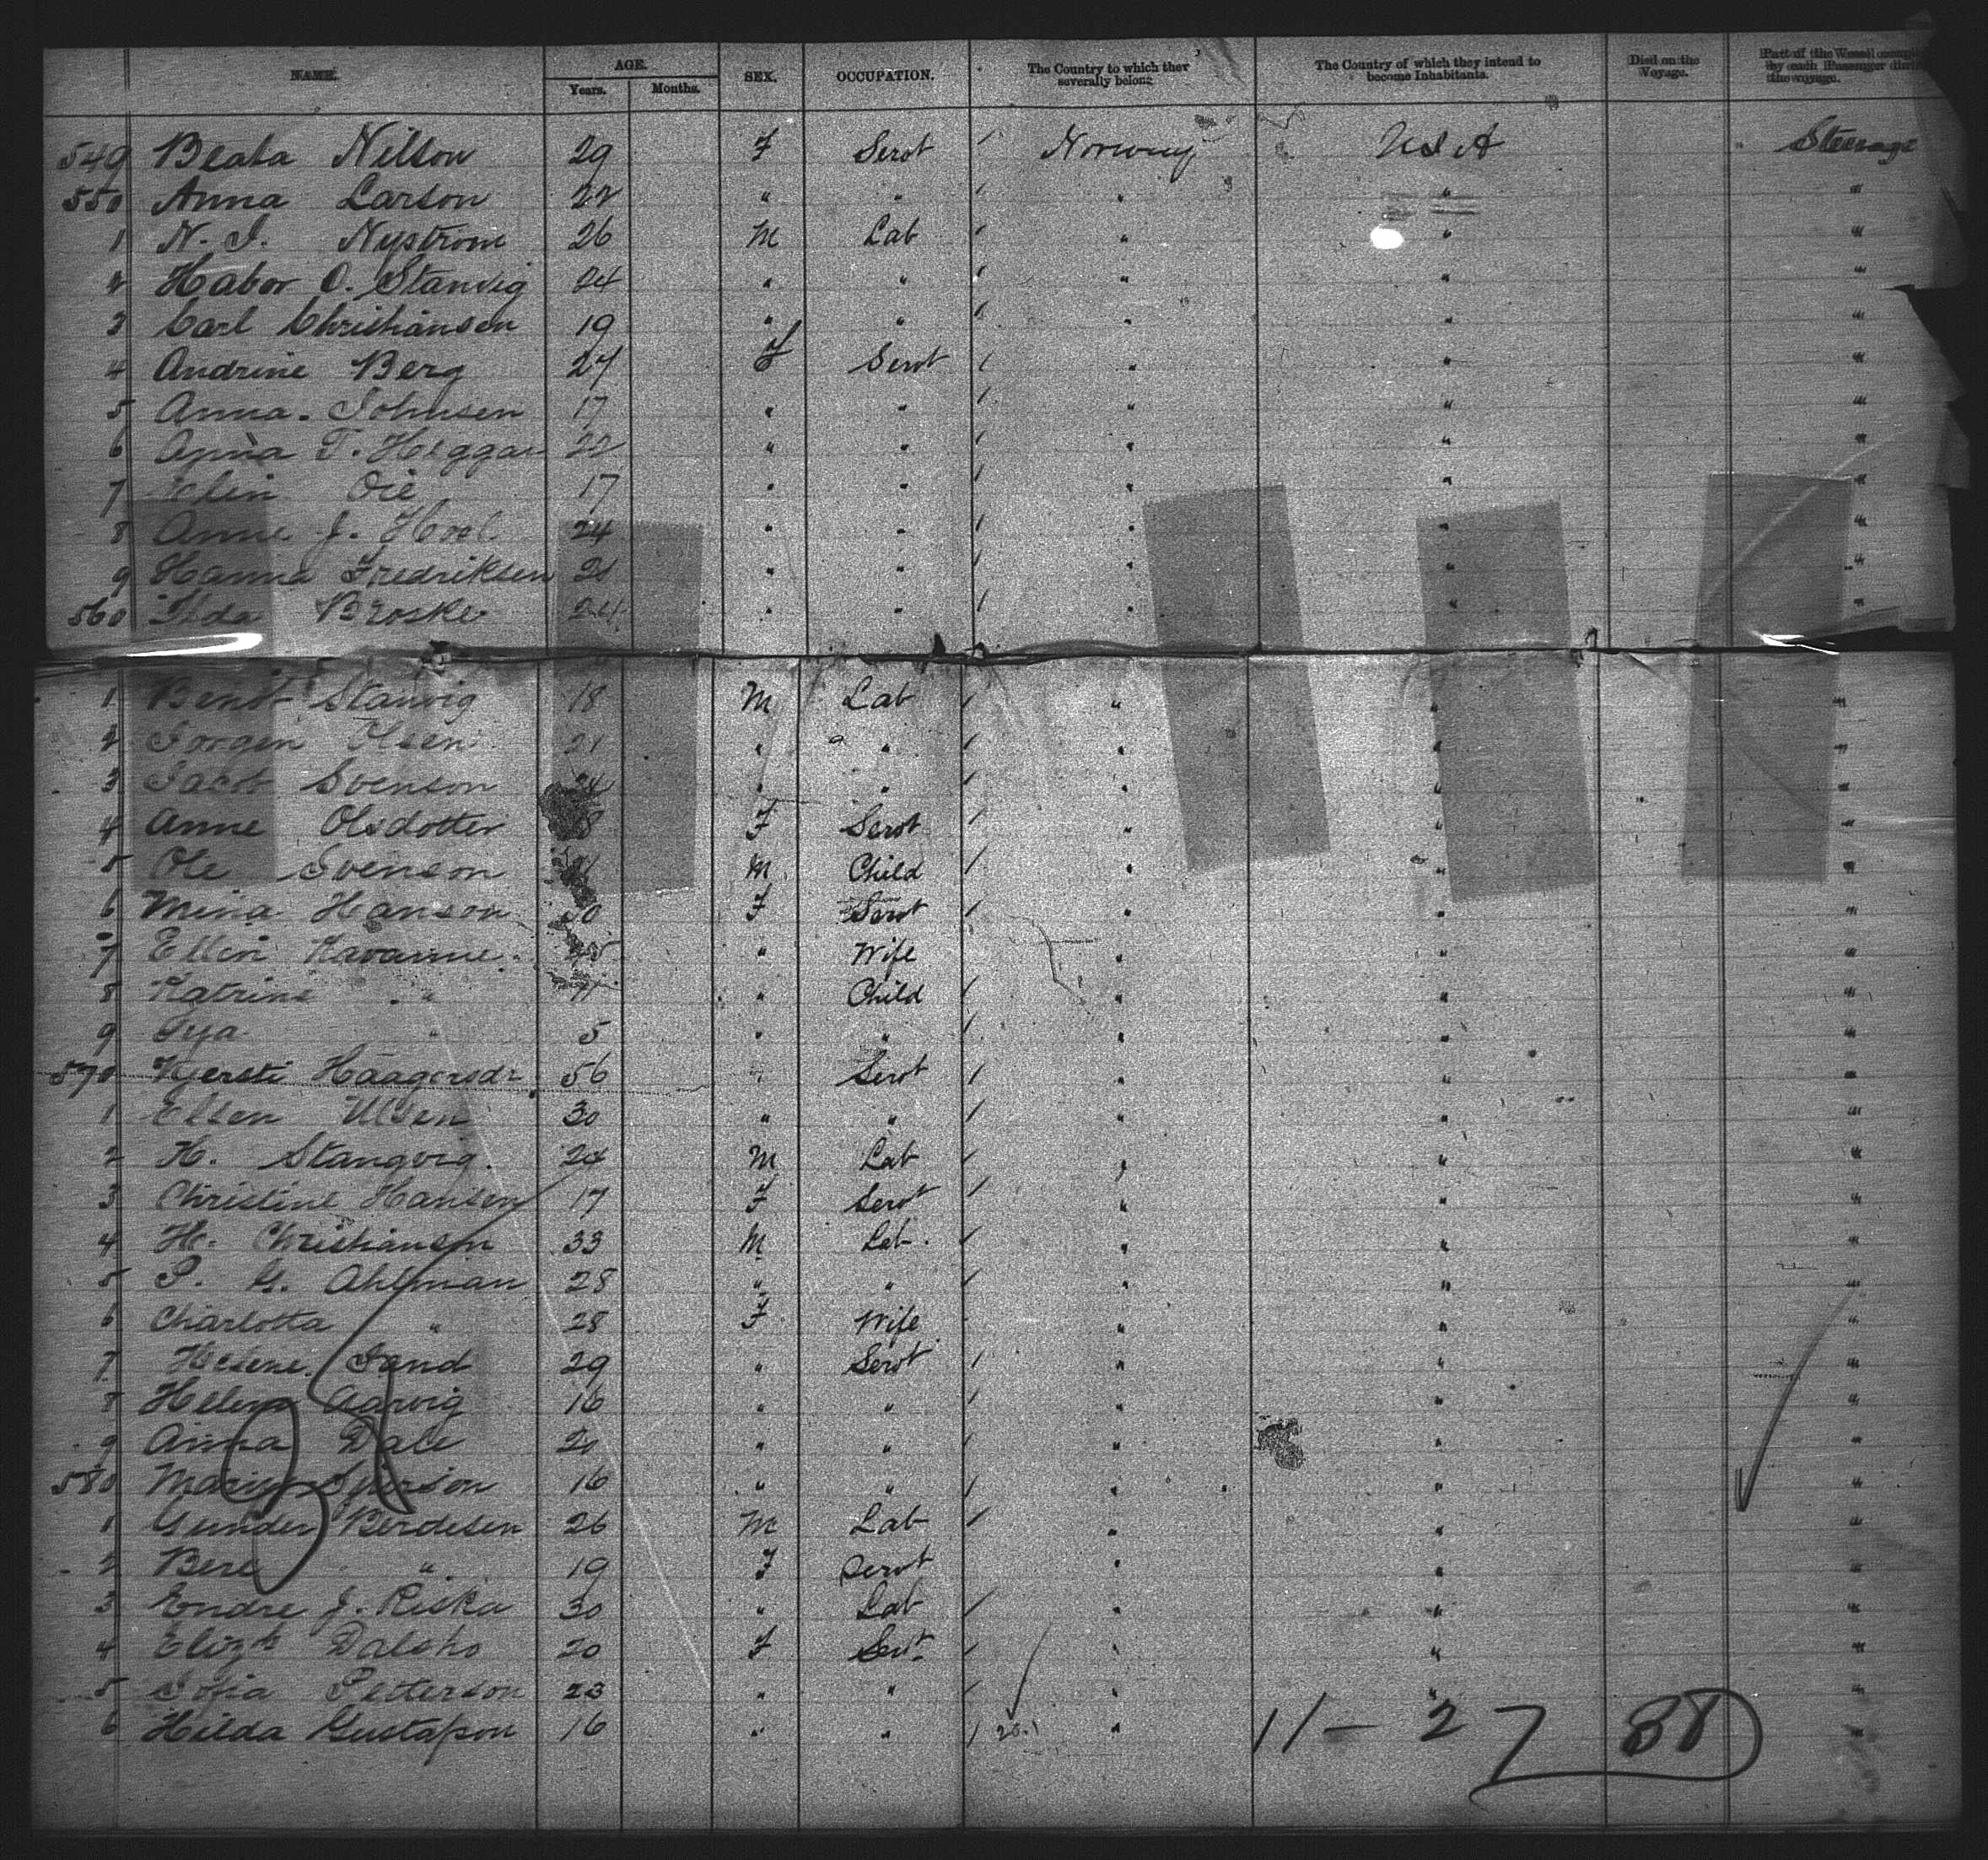 NAME. AGE. Years. Months. SEX. OCCUPATION. The Country to which they severally belong The Country of which they intend to become Inhabitants. Died on the Voyage. Part of the Vessel by each Passenger the voyage.
549 Beata Nilson 29 F Servt Norway USA Steerage
550 Anna Larson 22 " " " " "
1 N. J. Nystrom 26 M Lab " " "
2 Habor O. Stanvig 24 " " " " "
3 Carl Christiansen 19 " " " " "
4 Andrine Berg 27 F Servt " " "
5 Anna. Johnsen 17 " " " " "
6 Anna T. Heggar 22 " " " " "
7 Elin Oie 17 " " " " "
8 Anne J. Hoel 24 " " " " "
9 Hanna Fredriksen 21 " " " " "
560 Broske 24 " " " " "
1 Stanvig 18 M Lab " " "
2 Jorgen Olsen 21 " " " " "
3 Jacob Svenson 24 " " " " "
4 Anne Olsdotter F Servt " " "
5 Ole Svenson M Child " " "
6 Mina Hanson F Servt " " "
7 Ellen Kavanne. " Wife " " "
8 Katrine " 11 " Child " " "
9 " 5 " " " " "
570 Kjersti Haagersdr 56 " Servt " " "
1 Elsen Ulsen 30 " " " " "
2 H. Stangvig. 24 M Lab " " "
3 Christine Hansen 17 F Servt " " "
4 H. Christiansen 33 M Lab. " " "
5 P. G. Ahlman 28 " " " " "
6 Charlotta " 28 F Wife " " "
7 Helene Sand 29 " Servt " " "
8 Helena Aarvig 16 " " " " "
9 Anna Dale 20 " " " " "
580 16 " " " " "
1 Gunder Berdesen 26 M Lab " " "
2 Bere " 19 F Servt " " "
3 Endre J. Riska 30 " Lab " " "
4 Elizth Dalsho 20 F Servt " " "
5 Sofia Petterson 23 " " " " "
6 Hilda Gustafson 16 " " " " "
11-27 88